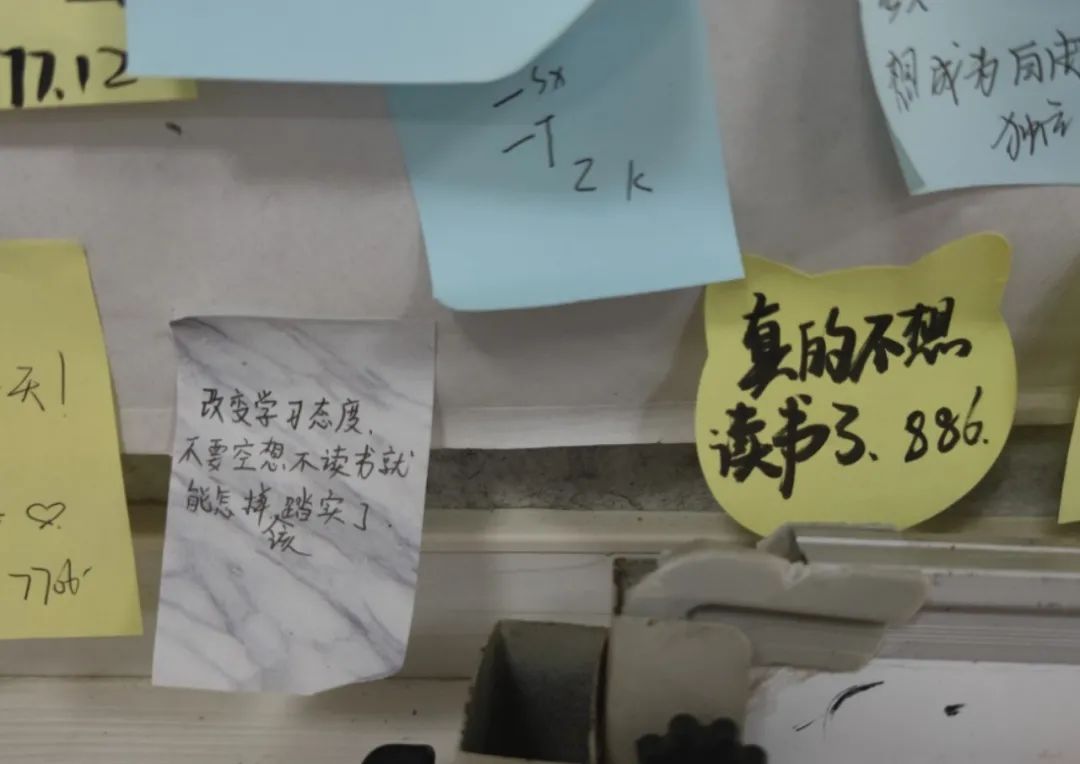 77.12
-sx
-T
Z K
想成为自由
独立
天!
7706.
改变学习态度.
不要空想不读书就
能怎样,踏实了.
该
真的不想
读书了、886.